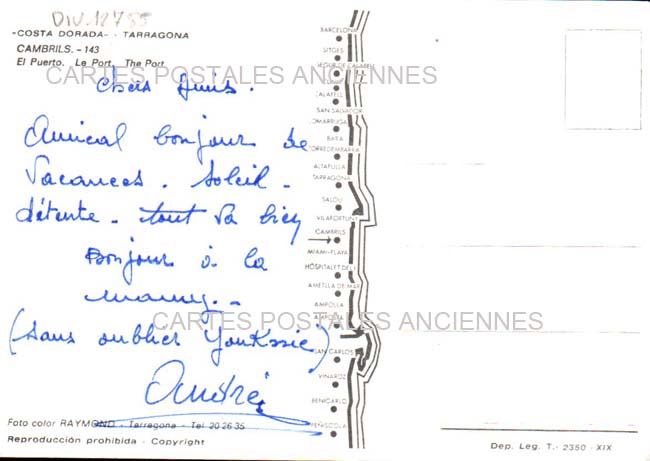 DIV.12755
"COSTA DORADA" - TARRAGONA
CAMBRILS. - 143
El Puerto. Le Port. The Port
CARTES POSTALES ANCIENNES
Chers Amis.
Amical bonjour de
Vacances. Soleil -
détente - tout va bien
Bonjour à la
mamy -
CARTES POSTALES ANCIENNES
(sans oublier
André
Foto color RAYMOND - Tarragona - Tel 20 26 35
Reproducción prohibida - Copyright
BARCELONA
SITGES
CALAFELL
SAN SALVADOR
COMARRUGA
BARA
TORREDEMBARRA
ALTAFULLA
TARRAGONA
SALOU
VILAFORTUNY
CAMBRILS
MIAMI-PLAYA
HOSPITALET DEL I.
AMETLLA DE MAR
AMPOLLA
SAN CARLOS
VINAROZ
BENICARLO
PEÑISCOLA
Dep. Leg. T. - 2350 - XIX